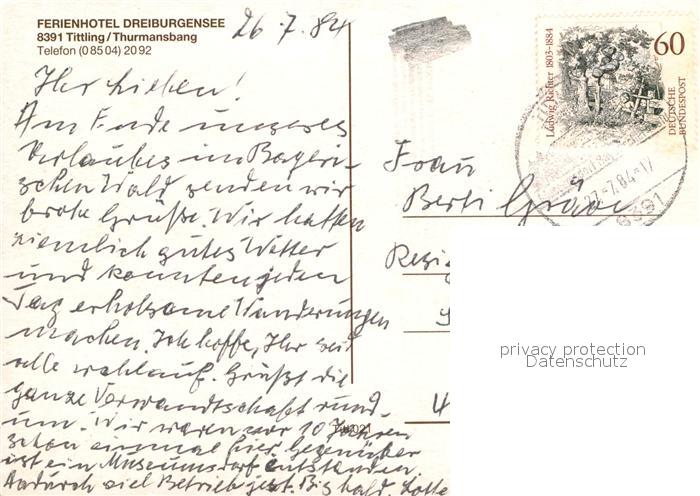 FERIENHOTEL DREIBURGENSEE
8391 Tittling/Thurmansbang
Telefon (08504) 2092
26.7.84
Ihr Lieben!
Am Ende unseres
Urlaubes im Bayeri-
schen Wald senden wir
frohe Grüße. Wir hatten
ziemlich gutes Wetter
und konnten jeden
Tag erholsame Wanderungen
machen. Ich hoffe, Ihr seid
alle wohlauf. Grüßt die
ganze Verwandtschaft rund-
um. Wir waren vor 10 Jahren
schon einmal hier. Gegenüber
ist ein Museumsdorf entstanden
dadurch viel Betrieb jetzt. Bis bald. Lotte
Frau
Berti
Ludwig Richter 1803-1884
60
DEUTSCHE
BUNDESPOST
27.-7.84-17
8391
privacy protection
Datenschutz